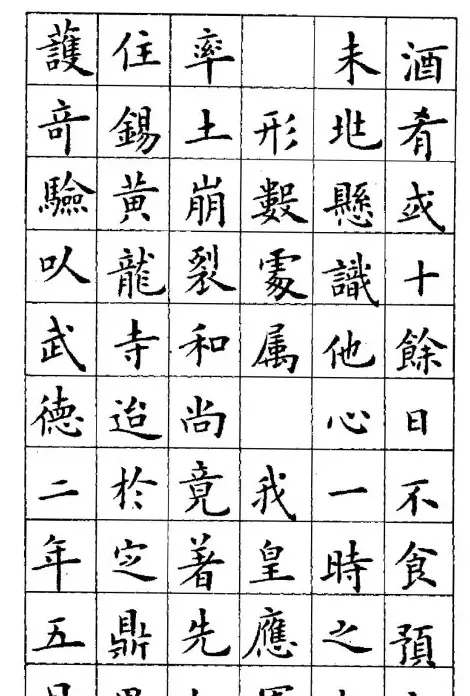 酒肴或十餘日不食預
未兆懸識他心一時之
形數處属 我皇應
率土崩裂和尚竟著先
住錫黃龍寺迨於定鼎
護奇驗以武德二年五